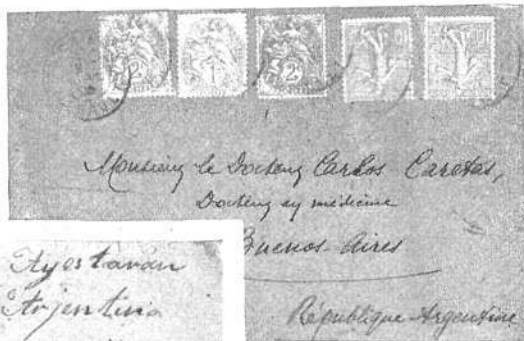 2 1 2 10 10
Monsieur le Docteur Carlos Caretas,
Docteur en médecine
Buenos-Aires
République Argentine
Ayestaran
Arjentina